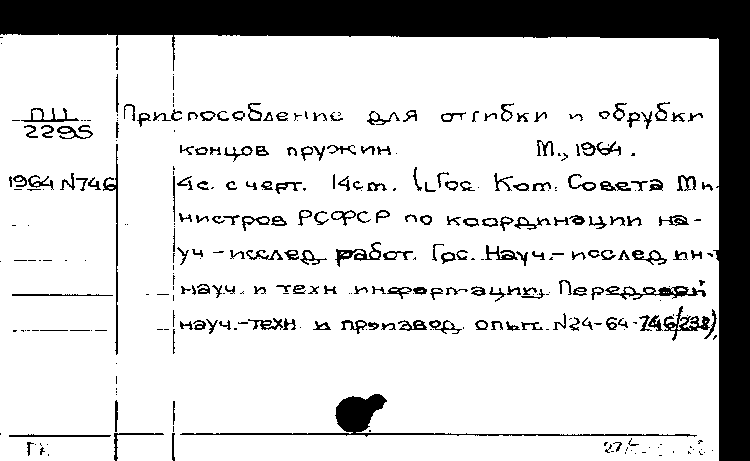 ПЦ
2295
Приспособление для отгибки и обрубки
концов пружин М., 1964.
1964 N746
4с. с черт. 14см. (Гос. Ком. Совета Ми-
нистров РСФСР по координации на-
уч-исслед. работ. Гос. Науч.-исслед. ин-т
науч. и техн информации. Передовой
науч.-техн и производ. опыт. N24-64-746/232),